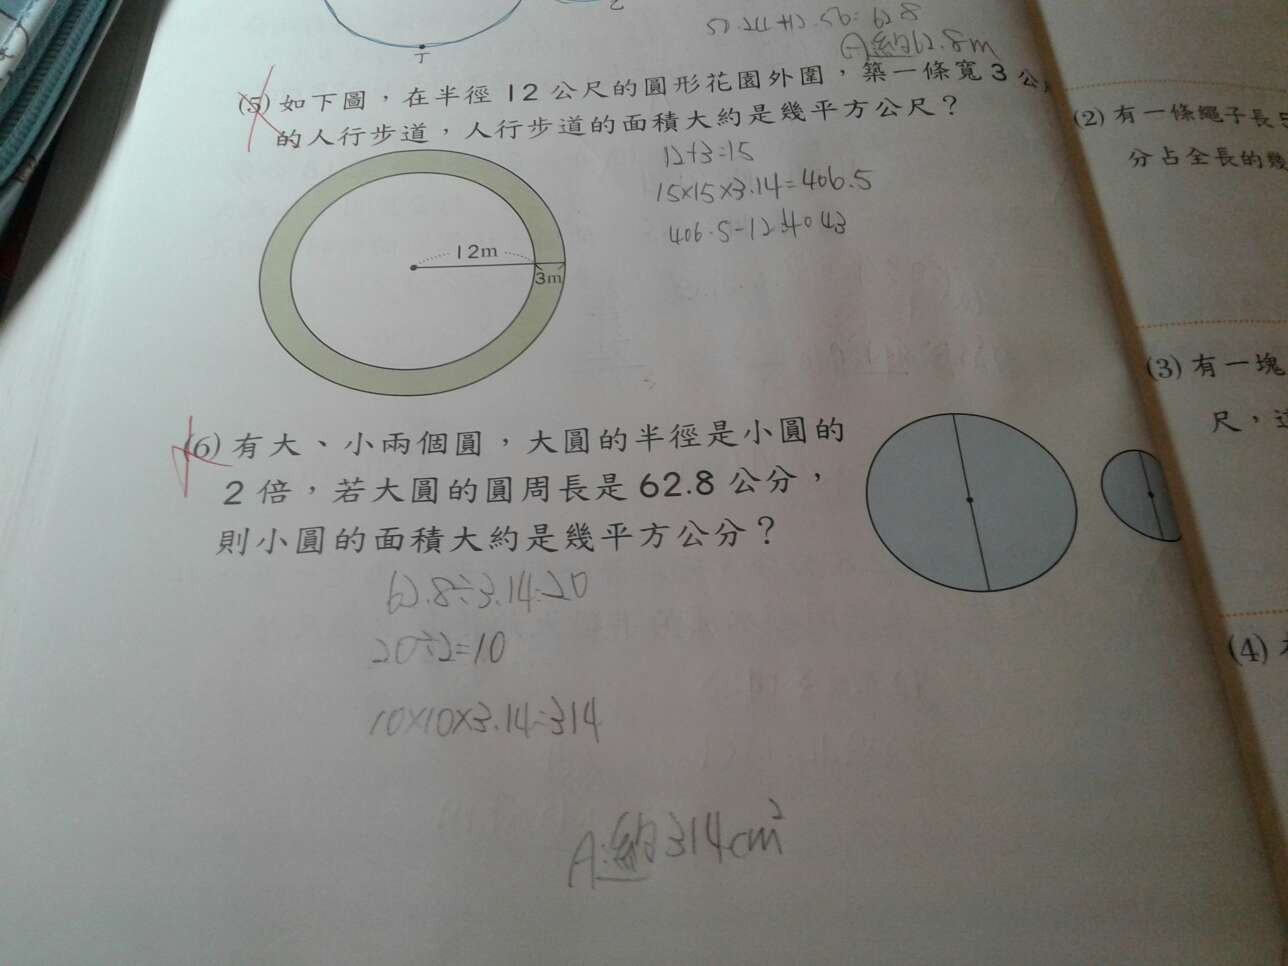 乙
丁
A 約62.8m
(5) 如下圖，在半徑 12 公尺的圓形花園外圍，築一條寬 3 公
的人行步道，人行步道的面積大約是幾平方公尺？
12+3=15
15×15×3.14=406.5
12m
3m
(6) 有大、小兩個圓，大圓的半徑是小圓的
2 倍，若大圓的圓周長是 62.8 公分，
則小圓的面積大約是幾平方公分？
62.8÷3.14=20
20÷2=10
10×10×3.14=314
A:約314cm²
(2) 有一條繩子長
分占全長的幾
(3) 有一塊
尺，這
(4)